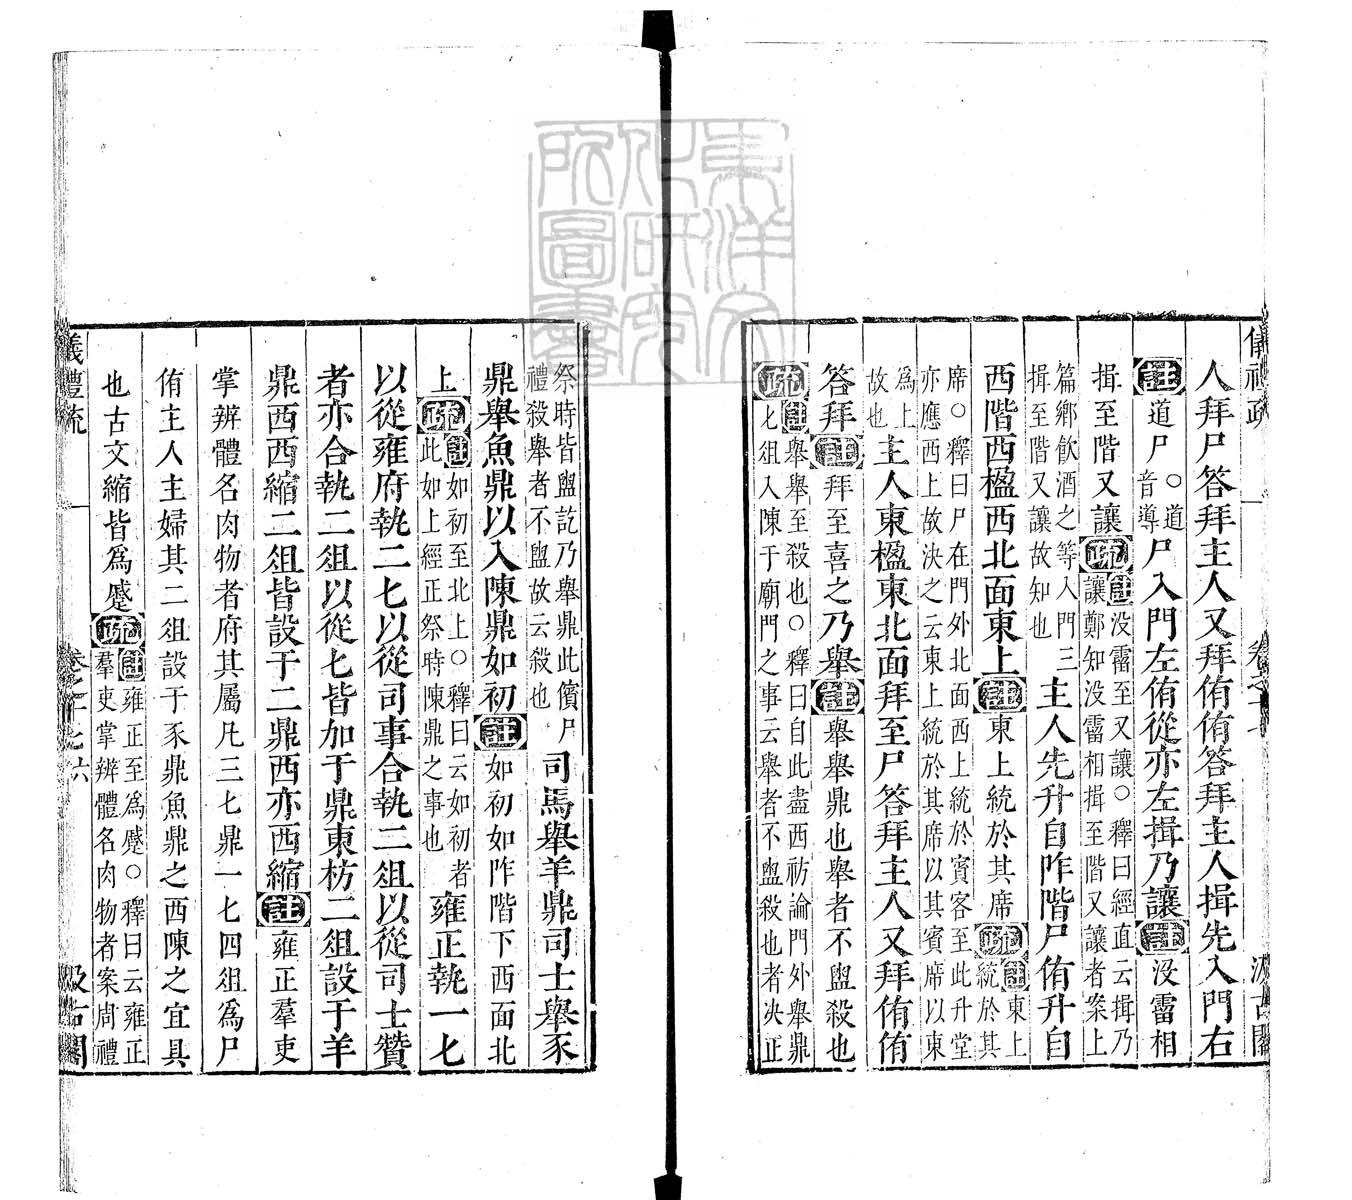 儀禮疏 卷之十七 汲古閣
人拜尸答拜主人又拜侑侑答拜主人揖先入門右
註道尸○道音導尸入門左侑從亦左揖乃讓註沒霤相
揖至階又讓疏註沒霤至又讓○釋曰經直云揖乃讓鄭知沒霤相揖至階又讓者案上
篇鄉飲酒之等入門三揖至階又讓故知也主人先升自阼階尸侑升自
西階西楹西北面東上註東上統於其席疏註東上統於其
席○釋曰尸在門外北面西上統於賓客至此升堂亦應西上故決之云東上統於其席以其賓席以東
爲上故也主人東楹東北面拜至尸答拜主人又拜侑侑
答拜註拜至喜之乃舉註舉舉鼎也舉者不盥殺也
疏註舉舉至殺也○釋曰自此盡西祊論門外舉鼎匕俎入陳于廟門之事云舉者不盥殺也者決正
祭時皆盥訖乃舉鼎此儐尸禮殺舉者不盥故云殺也司馬舉羊鼎司士舉豕
鼎舉魚鼎以入陳鼎如初註如初如阼階下西面北
上疏註如初至北上○釋曰云如初者此如上經正祭時陳鼎之事也雍正執一匕
以從雍府執二匕以從司事合執二俎以從司士贊
者亦合執二俎以從匕皆加于鼎東枋二俎設于羊
鼎西西縮二俎皆設于二鼎西亦西縮註雍正羣吏
掌辨體名肉物者府其屬凡三匕鼎一匕四俎爲尸
侑主人主婦其二俎設于豕鼎魚鼎之西陳之宜具
也古文縮皆爲蹙疏註雍正至爲蹙○釋曰云雍正羣吏掌辨體名肉物者案周禮
儀禮疏 卷之十七 六 汲古閣
東洋文化研究所圖書